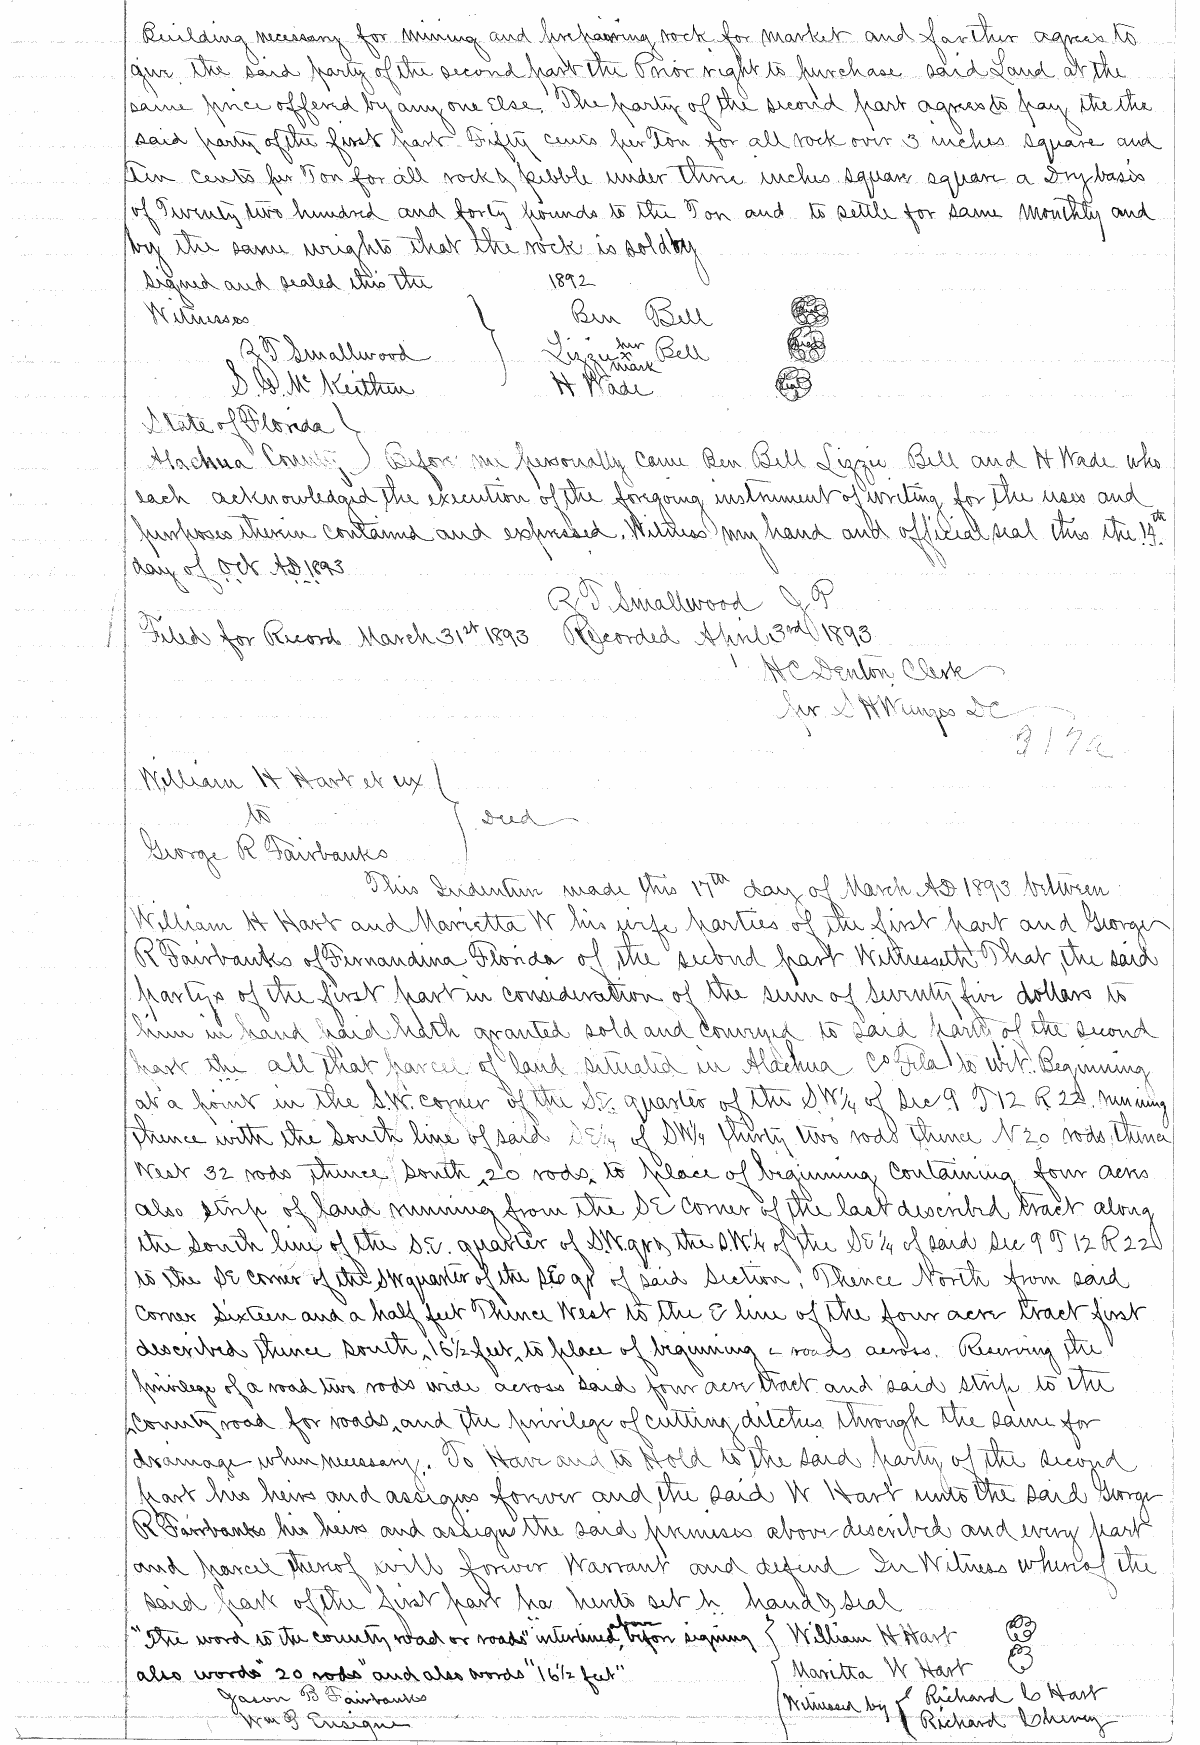 Building necessary for mining and preparing rock for market and farther agrees to
give the said party of the second part the Prior right to purchase said Land at the
same price offered by any one Else. The party of the second part agrees to pay the the
said party of the first part Fifty cents per Ton for all rock over 3 inches square and
Ten cents per Ton for all rock & pebble under three inches square square a Dry basis
of Twenty two hundred and forty pounds to the Ton and to settle for same monthly and
by the same wrights that the rock is sold by
signed and sealed this the 1892
Witnesses Ben Bell Seal
R T Smallwood Lizzie her x mark Bell Seal
S. D. Mc Keithen H Wade Seal
State of Florida
Alachua County Before me personally came Ben Bell Lizzie Bell and H Wade who
each acknowledged the execution of the foregoing instrument of writing for the uses and
purposes therein contained and expressed. Witness my hand and official seal this the 14th
day of Oct AD 1893
R T Smallwood J P
Filed for Record March 31st 1893 Recorded April 3rd 1893
H C Denton Clerk
per S H Wienges DC
William H Hart et ux
to Deed
George R Fairbanks
This Indenture made this 17th day of March AD 1893 between
William H Hart and Marietta W his wife parties of the first part and George
R Fairbanks of Fernandina Florida of the second part Witnesseth That the said
partys of the first part in consideration of the sum of seventy five dollars to
him in hand paid hath granted sold and conveyed to said party of the second
part the all that parcel of land situated in Alachua Co Fla to wit: Beginning
at a point in the S.W. corner of the S.E. quarter of the S.W 1/4 of Sec 9 T 12 R 22. running
thence with the South line of said SE 1/4 of SW 1/4 thirty two rods thence N 20 rods thence
West 32 rods thence South 20 rods to place of beginning containing four acres
also strip of land running from the SE corner of the last described tract along
the South line of the S.E. quarter of S.W. qr & the S.W 1/4 of the SE 1/4 of said Sec 9 T 12 R 22
to the SE corner of the SW quarter of the SE qr of said Section. Thence North from said
corner Sixteen and a half feet Thence West to the E line of the four acre tract first
described thence South 16 1/2 feet to place of beginning roads across. Reserving the
privilege of a road two rods wide across said four acre tract and said strip to the
County road for roads and the privilege of cutting ditches through the same for
drainage when necessary. To Have and to Hold to the said party of the second
part his heirs and assigns forever and the said W Hart unto the said George
R Fairbanks his heirs and assigns the said premises above described and every part
and parcel thereof will forever Warrant and defend In Witness whereof the
said part of the first part ha hereto set h hand & seal
"The word to the county road or roads" interlined before signing William H Hart
also words "20 rods" and also words "16 1/2 feet" Maritta W Hart
Jason B Fairbanks Witnessed by Richard C Hart
Wm P Ensigne Richard Cheney